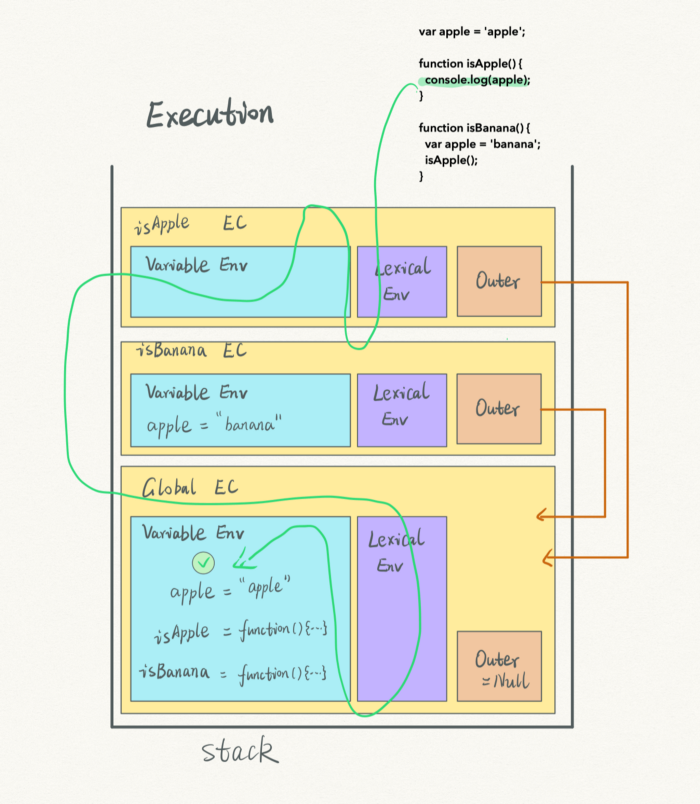 var apple = 'apple';
function isApple() {
console.log(apple);
}
function isBanana() {
var apple = 'banana';
isApple();
}
Execution
isApple EC
Variable Env
Lexical
Env
Outer
isBanana EC
Variable Env
apple = "banana"
Lexical
Env
Outer
Global EC
Variable Env
apple = "apple"
isApple = function(){...}
isBanana = function(){...}
Lexical
Env
Outer
=Null
stack